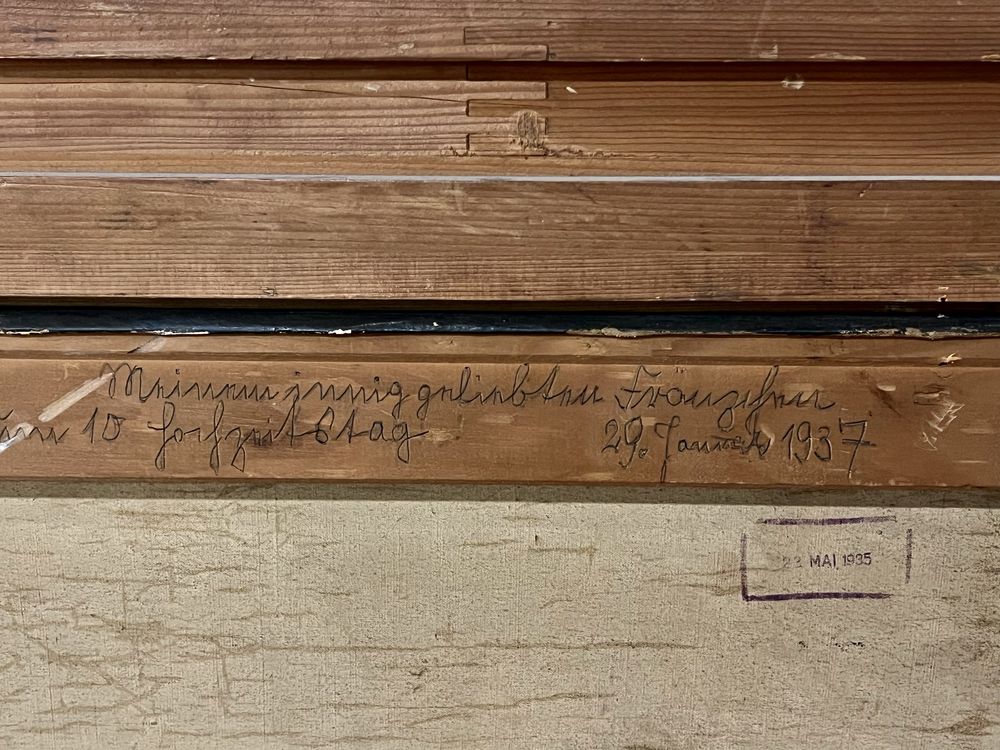 Meinem innig geliebten Franzchen
zum 10 Hochzeitstag 29. Januar 1937
MAI 1935